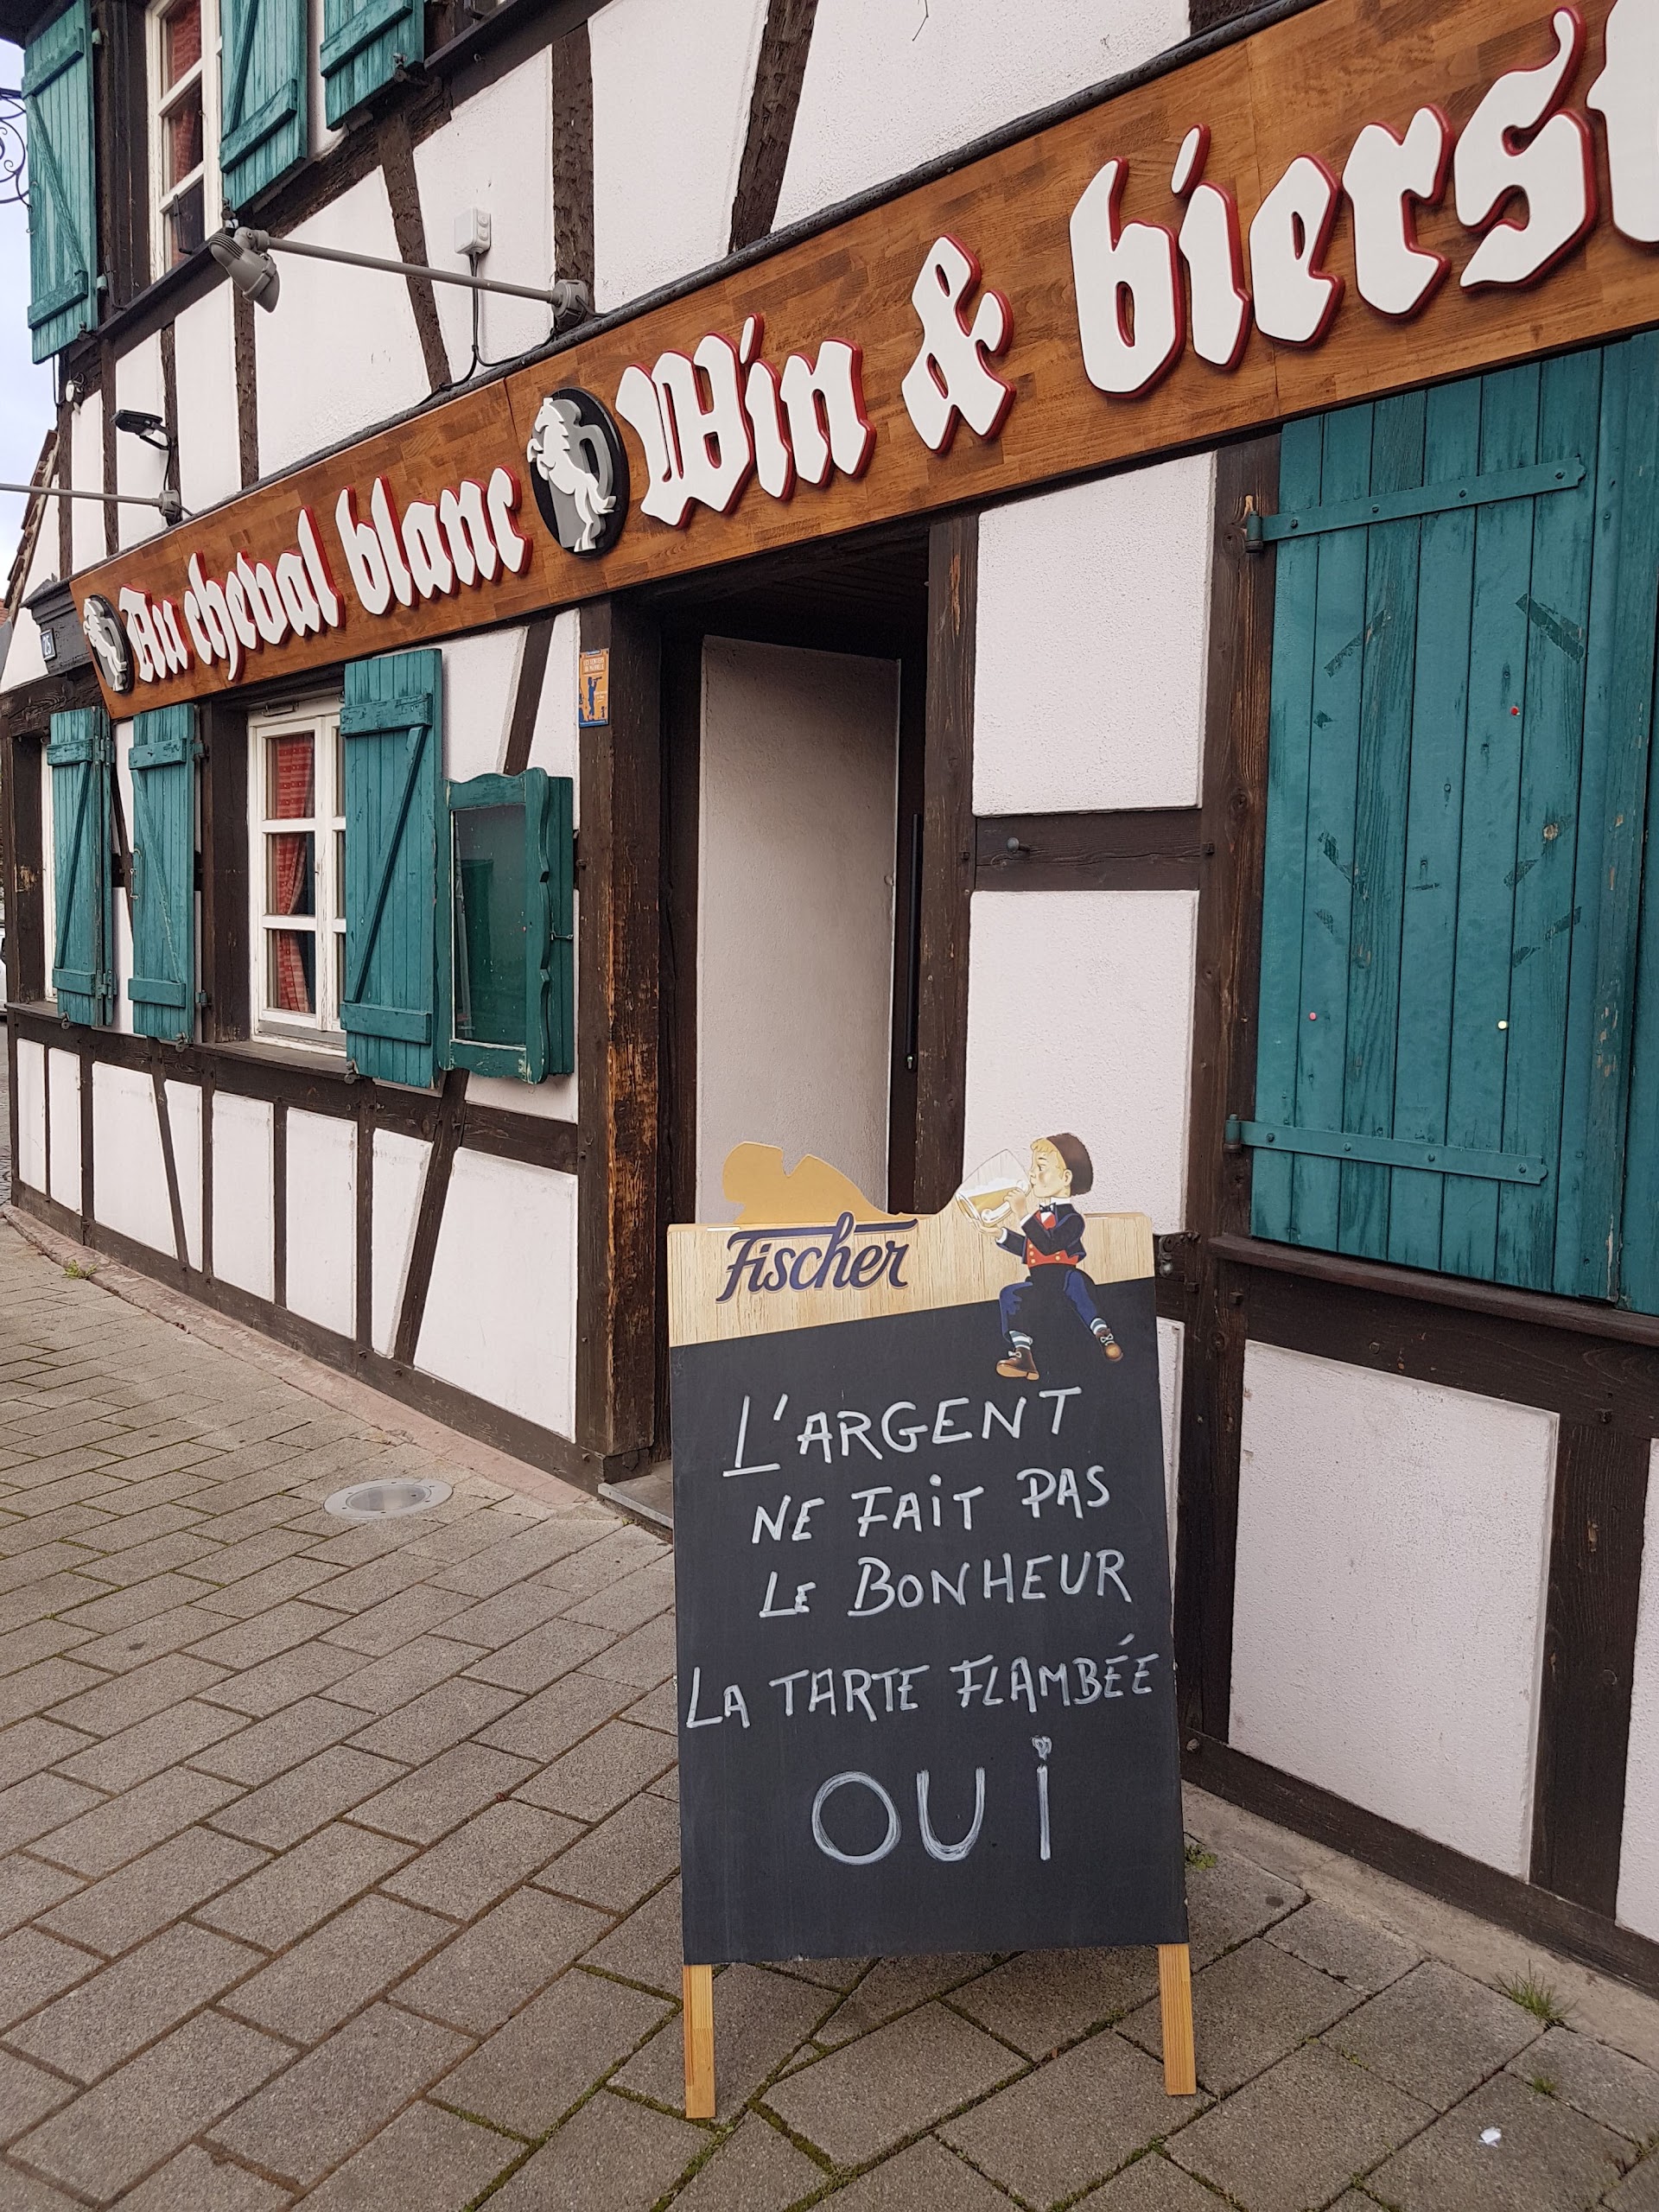 Au cheval blanc Win & bierst
25
Fischer
L'ARGENT
NE FAiT PAS
LE BONHEUR
LA TARTE FLAMBÉE
OUi